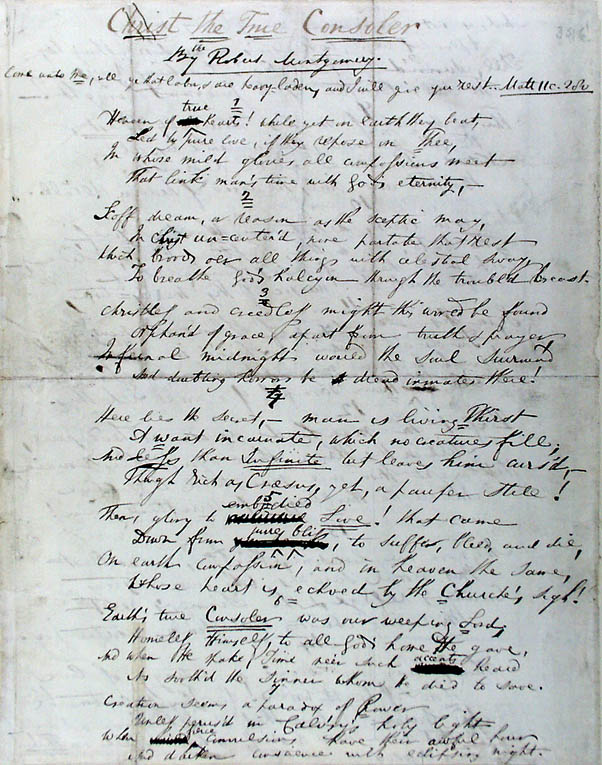 Christ the True Consoler
By the Robert Montgomery.
Come unto Me, all ye that labour, are heavy-laden, and I will give you rest. Matt 11 c. 28 v
true 1
Heaven of hearts! while yet on earth they beat,
Led by pure love, if they repose in Thee,
In whose mild glories all compassions meet
That link man's time with God's eternity,—
2
Scoff, dream, or reason as the sceptic may,
In Christ un-center'd, none partake that rest
Which broods o'er all things with celestial sway
To breathe God's halcyon through the troubled breast.
3
Christless and creedless might this world be found
Orphan'd of grace, apart from truth & prayer
Infernal midnight would the Soul surround
And darkling horrors be dread inmates there!
4
Here lies the secret,— man is living Thirst
A want incarnate, which no creatures fill;
And less than Infinite but leaves him curs'd,—
Though rich as Crœsus, yet, a pauper still!
5
embodied
Then, glory to Love! that came
pure bliss
Down from, to suffer, bleed, and die,
On earth compassion, and in heaven the same,
Whose heart is echoed by the Church's sigh!
6
Earth's true Consoler was our weeping Lord;
Homeless Himself, to all God's home He gave,
And when He spake, Time ne'er such accents heard
As sooth'd the Sinner whom He died to save.
7
Creation seems a parody of Power
Unless perus'd in Calvary's holy light
When fierce convulsions have their awful hour
And darken conscience with eclipsing night.